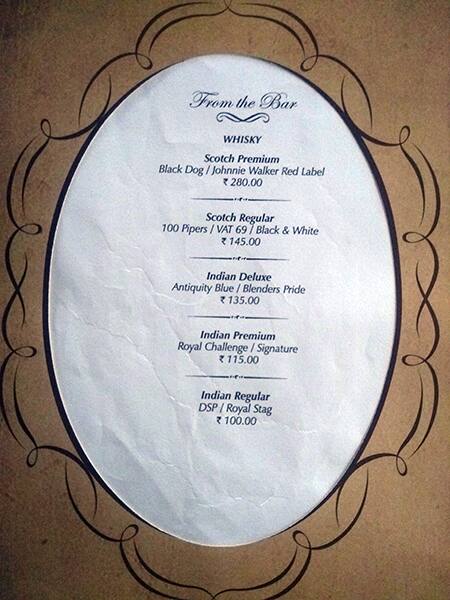 From the Bar
WHISKY
Scotch Premium
Black Dog / Johnnie Walker Red Label
₹ 280.00
Scotch Regular
100 Pipers / VAT 69 / Black & White
₹ 145.00
Indian Deluxe
Antiquity Blue / Blenders Pride
₹ 135.00
Indian Premium
Royal Challenge / Signature
₹ 115.00
Indian Regular
DSP / Royal Stag
₹ 100.00